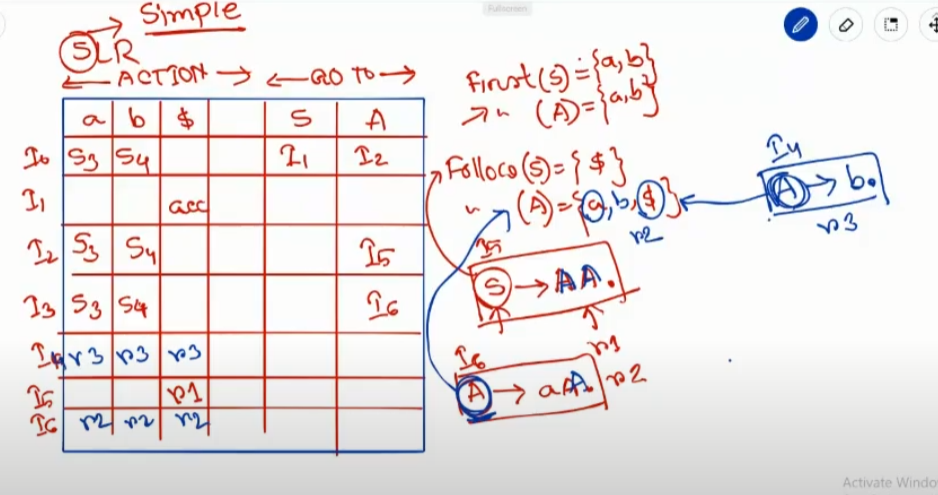 Fullscreen
Simple
SLR
ACTION GO TO
a b $ S A
I0 S3 S4 I1 I2
I1 acc
I2 S3 S4 I5
I3 S3 S4 I6
I4 r3 r3 r3
I5 r1
I6 r2 r2 r2
First(S)={a,b}
" (A)={a,b}
Follow(S)={$}
" (A)={a,b,$}
r2
I4
A→b.
r3
I5
S→AA.
r1
I6
A→aA.
r2
Activate Windo